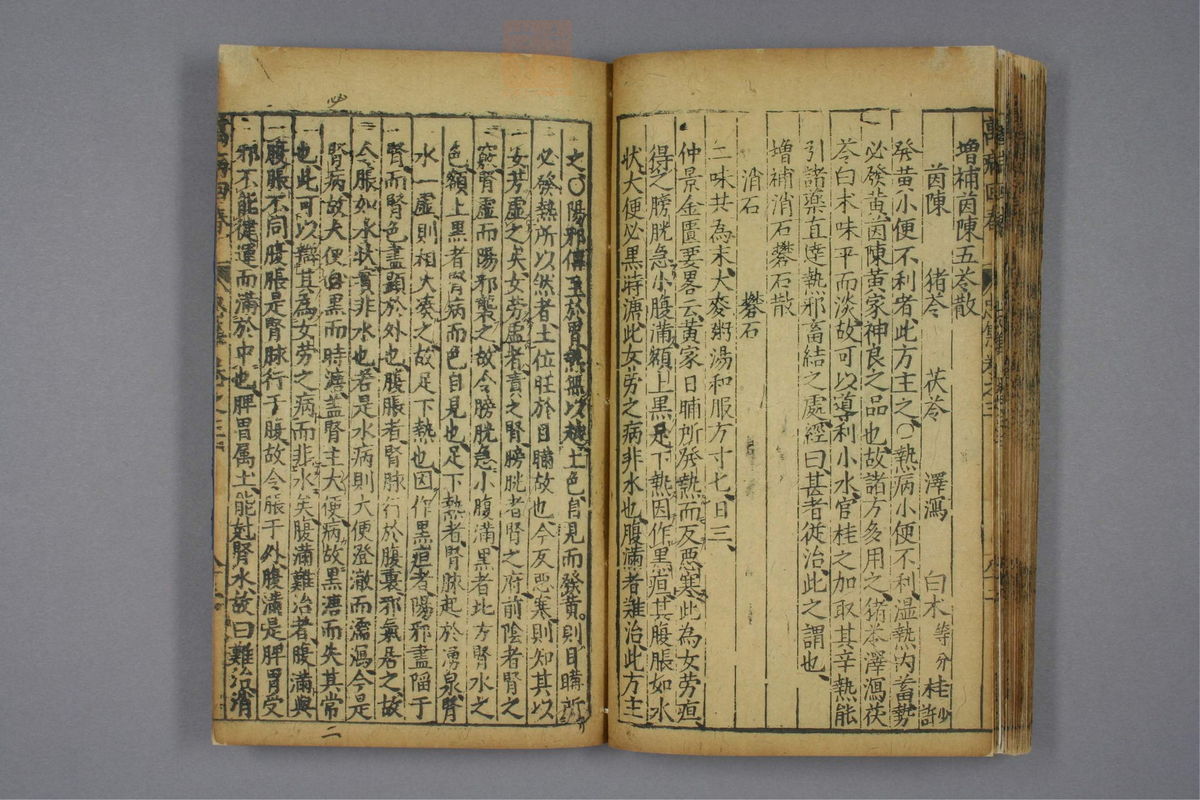 增補茵陳五苓散
茵陳 猪苓 茯苓 澤瀉 白木 等分 桂 少許
發黃小便不利者此方主之○熱病小便不利濕熱內蓄勢
必發黃茵陳黃家神良之品也故諸方多用之猪苓澤瀉茯
苓白木味平而淡故可以導利小水官桂之加取其辛熱能
引諸藥直達熱邪畜結之處經曰甚者從治此之謂也
增補消石礬石散
消石 礬石
二味共為末大麥粥湯和服方寸匕日三
仲景金匱要畧云黃家日晡所發熱而反惡寒此為女勞疸
得之膀胱急小腹滿額上黑足下熱因作黑疸其腹脹如水
狀大便必黑時溏此女勞之病非水也腹滿者難治此方主
之○陽邪傳至於胃土色自見而發黃則日晡所
必發熱所以然者土位旺於日晡故也今反惡寒則知其以
女勞虛之矣女勞虛者責之腎膀胱者腎之府前陰者腎之
竅腎虛而陽邪襲之故令膀胱急小腹滿黑者北方腎水之
色額上黑者腎病而色自見也足下熱者腎脉起於湧泉腎
水一虛則相火凑之故足下熱也因作黑疸者陽邪盡陷于
腎而腎色盡顯於外也腹脹者腎脉行於腹裏邪氣居之故
令脹如水狀實非水也若是水病則大便澄澈而濡瀉今是
腎病故大便自黑而時溏盖腎主大便病故黑溏而失其常
也此可以辯其為女勞之病而非水矣腹滿難治者腹滿與
腹脹不同腹脹是腎脉行于腹故令脹于外腹滿是脾胃受
邪不能健運而滿於中也脾胃属土能尅腎水故曰難治消
萬病回春